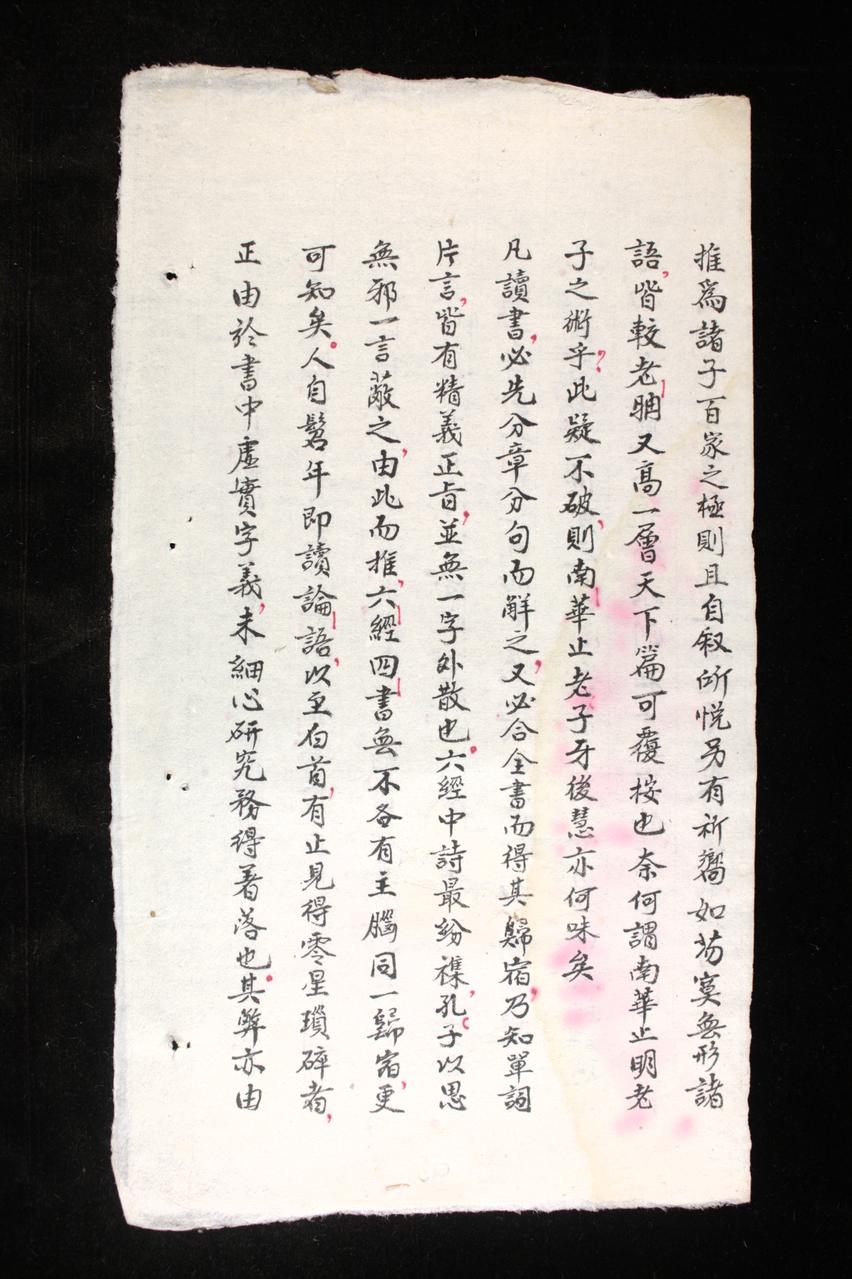 推爲諸子百家之極則且自叙所悅另有祈嚮如芴寞無形諸
語，皆較老聃又高一層天下篇可覆按也奈何謂南華止明老
子之術乎？此疑不破，則南華止老子牙後慧亦何味矣
凡讀書，必先分章分句而解之，又必合全書而得其歸宿，乃知單詞
片言，皆有精義正旨，並無一字外散也。六經中詩最紛襍，孔子以思
無邪一言蔽之，由此而推，六經四書無不各有主腦同一歸宿，更
可知矣。人自髫年即讀論語，以至白首，有止見得零星瑣碎者，
正由於書中虛實字義，未細心研究務得着落也。其弊亦由